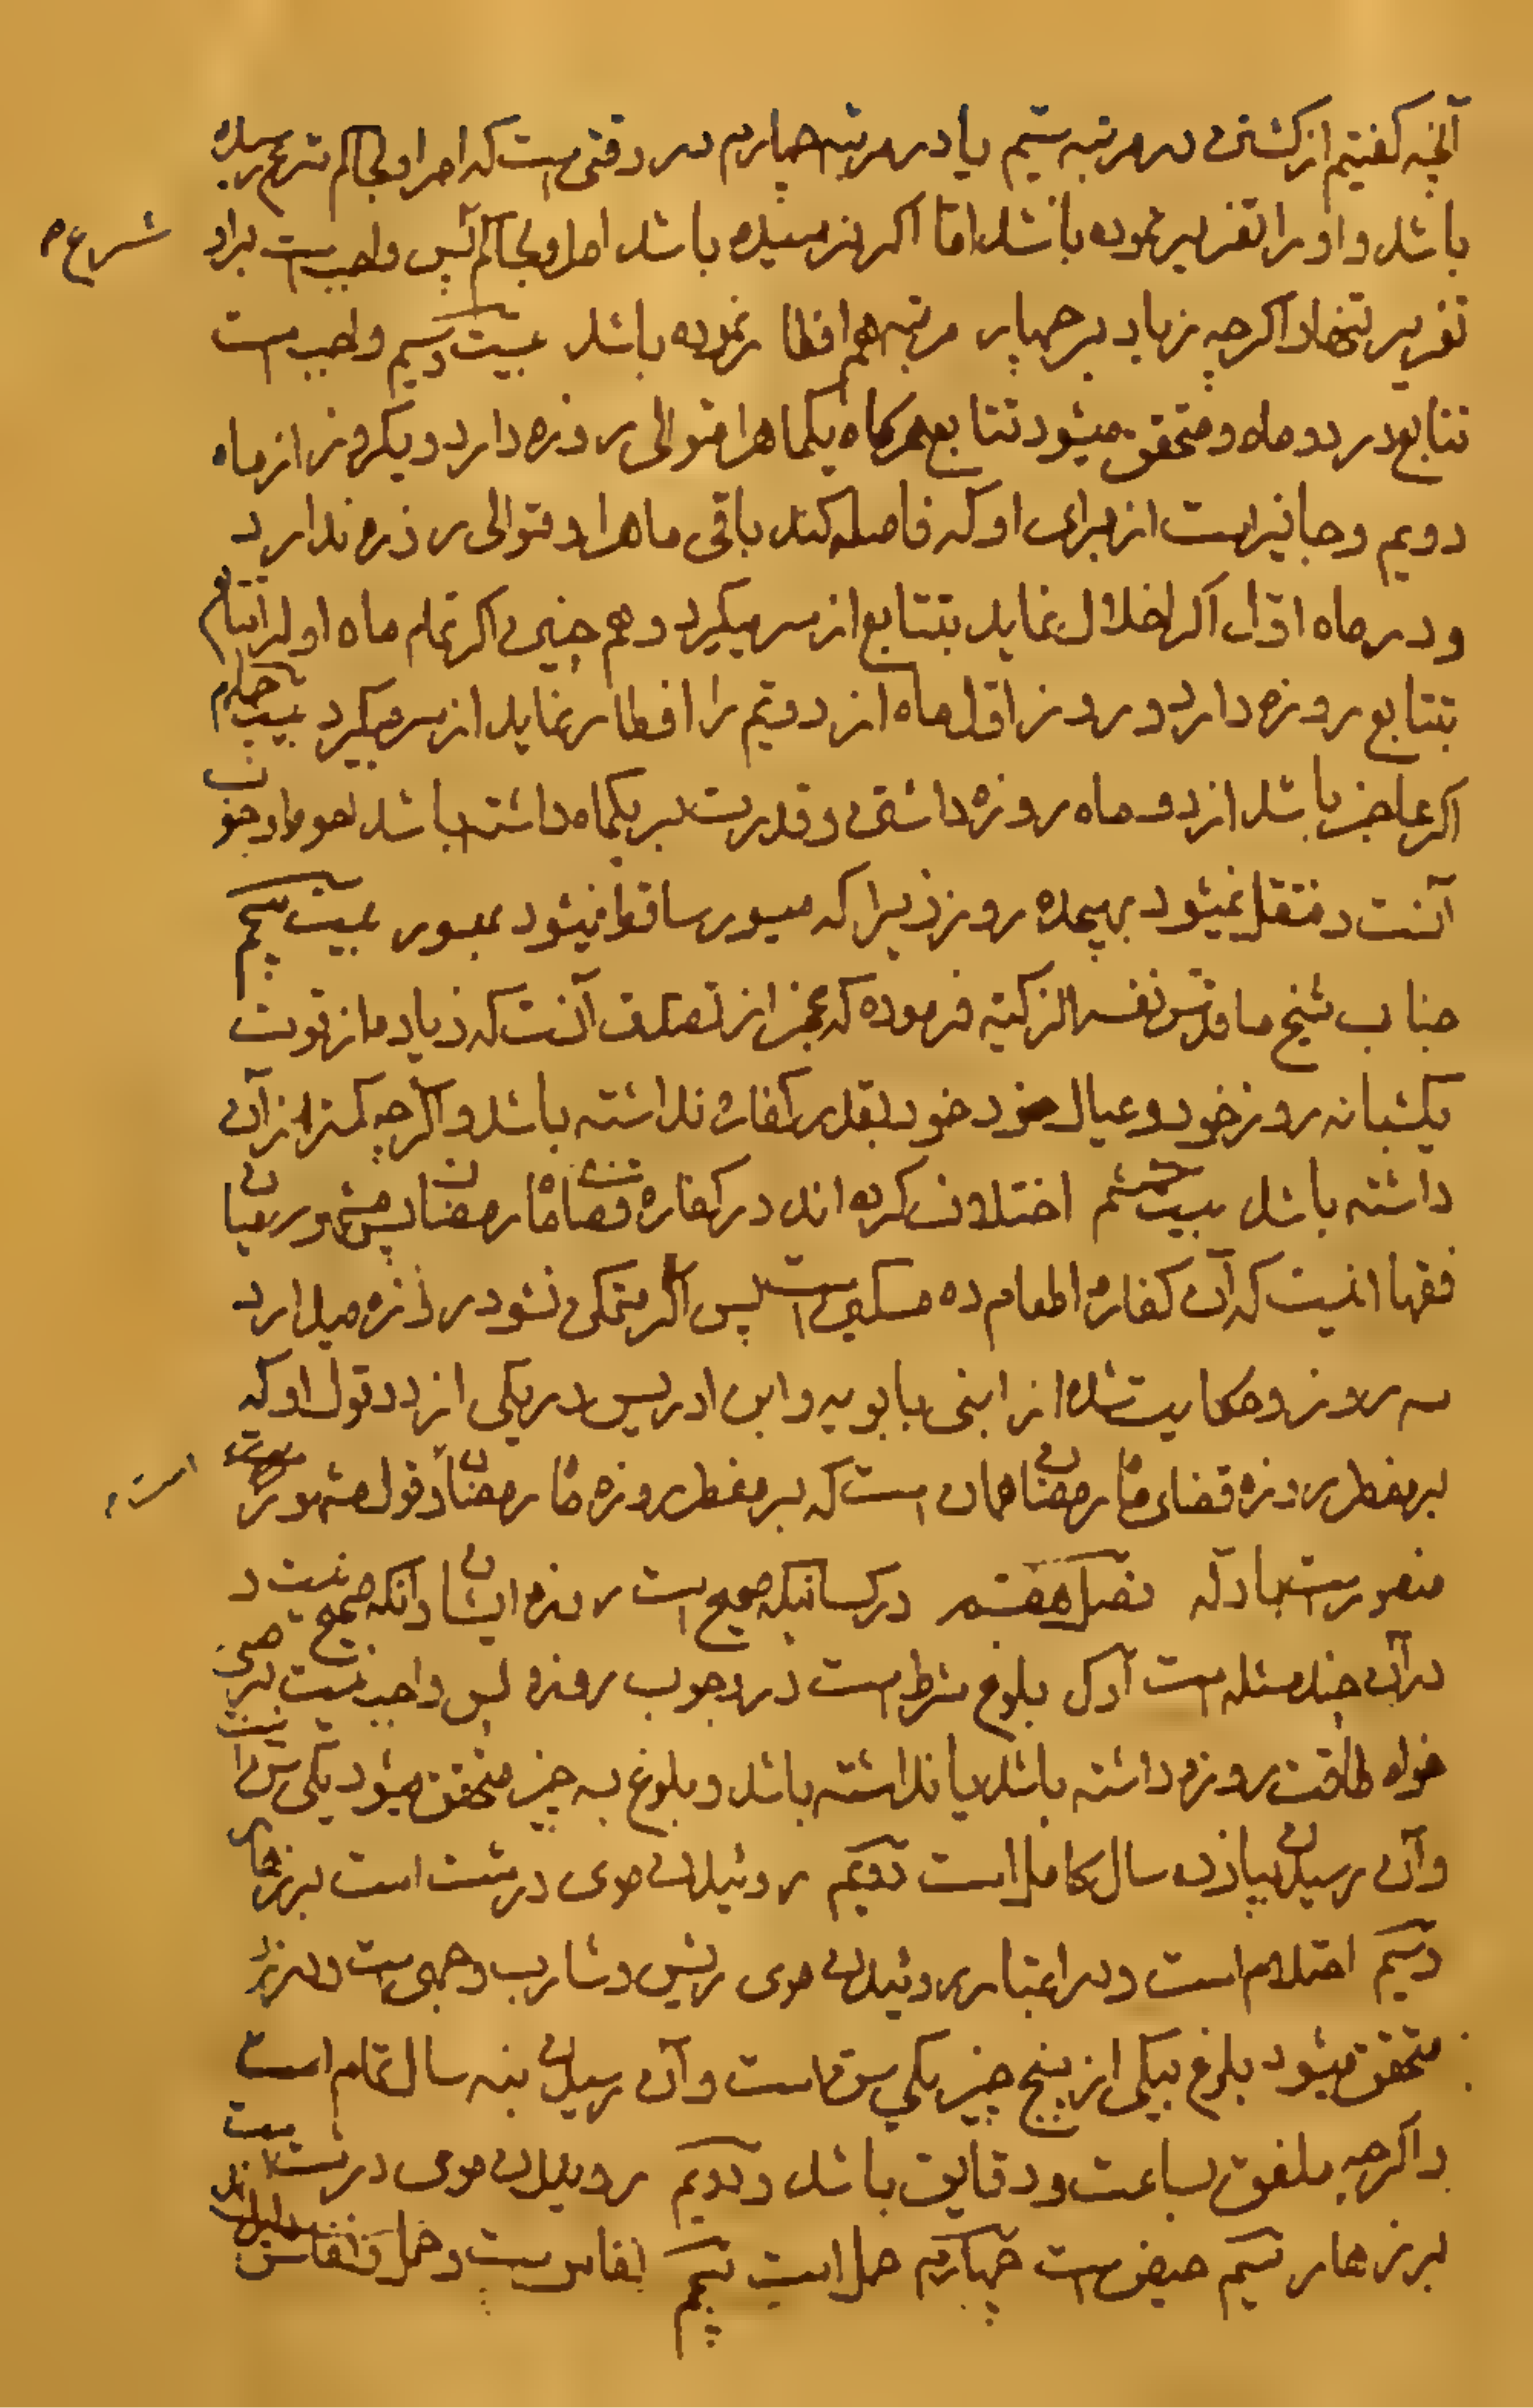 آنچه کفتیم از کشتن در مرتبه سیم یا در مرتبه چهارم در وقتی است که امر او بحاکم شرع رسیده
باشد و او را تعزیر نموده باشد اما اکر نرسیده باشد امر او بحاکم پس واجب است بر او
شرع
تعزیر تنها و اکرچه زیاد بر چهار مرتبه هم افطار نموده باشد بیست و سیم واجب است
تتابع در دو ماه و متحقق میشود تتابع هر کاه یکماه را متوالی روزه دارد و یکروز از ماه
دویم و جایز است از برای او که فاصله کند باقی ماه را و متوالی روزه ندارد
و در ماه اول اکر اخلال نماید بتتابع از سر میکیرد و هم چنین اکر تمام ماه اول را
بتتابع روزه دارد و روز اول ماه از دویم را افطار نماید از سر میکیرد بیست چهارم
اکر عاجز باشد از دو ماه روزه داشتن و قدرت بر یکماه داشته باشد وجوب
آنست و منتقل نمیشود بهیجده روز زیرا که میسور ساقط نمیشود بمعسور بیست پنجم
جناب شیخ ما قدس نفسه الزکیه فرموده که عجز از تصدق آنست که زیاده از قوت
یکشبانه روز خود و عیال خود بقدر کفاره نداشته باشد و اکرچه کمتر از آن
داشته باشد بیست ششم اختلاف کرده اند در کفاره قضا ماه رمضان پس مشهور میان
فقها اینست که آن کفاره اطعام ده مسکین است پس اکر متمکن نشود روزه میدارد
سه روز و حکایت شده از ابنی بابویه و ابن ادریس در یکی از دو قول او که
بر مفطر روزه قضای ماه رمضان همان است که بر مفطر روزه ماه رمضان و قول مشهور
است
منصور است بادله فصل هفتم در کسانیکه صحیح است روزه ایشان و آنکه صحیح نیست و
در آن چند مسئله است اول بلوغ شرط است در وجوب روزه پس واجب نیست بر صبی
خواه طاقت روزه داشته باشد یا نداشته باشد و بلوغ بسه چیز متحقق میشود یکی سن است
و آن رسیدن بپانزده سال کامل است دویم روئیدن موی درشت است بر زهار
سیم احتلام است و در اعتبار روئیدن موی ریش و شارب وجهی است و در زن
متحقق میشود بلوغ بیکی از پنج چیز یکی سن است و آن رسیدن بنه سال تمام است
و اکرچه ملفق بساعت و دقایق باشد و دویم روئیدن موی درشت است
بر زهار سیم حیض است چهارم حمل است پنجم نفاس است و حمل و نفاس